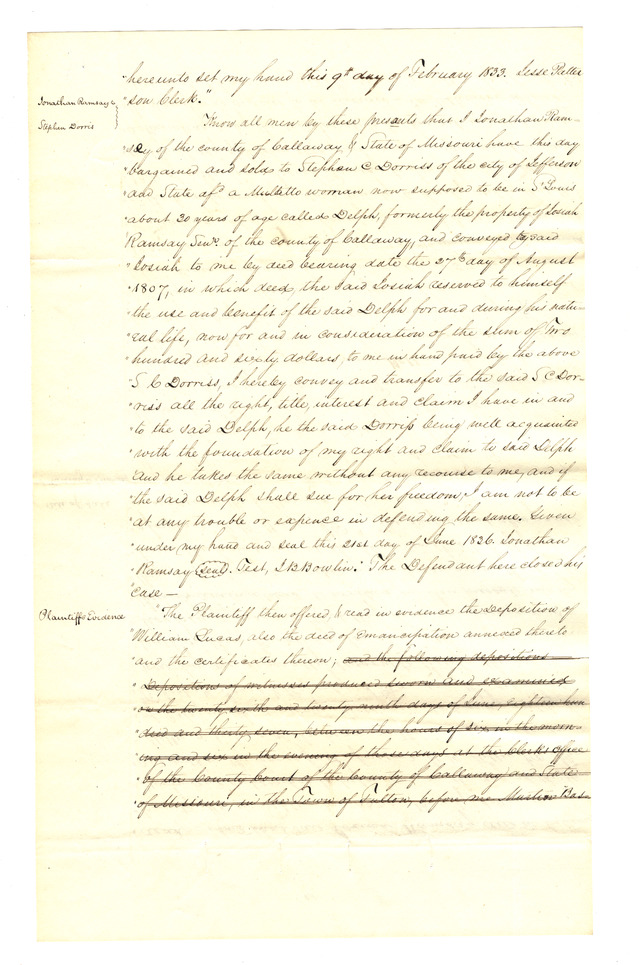 "hereunto set my hand this 9th day of February 1833. Jesse Patter
"son Clerk."
Jonathan Ramsay &
Stephen Dorris
Know all men by these presents that I Jonathan Ram-
"sey of the county of Callaway & State of Missouri have this day
"bargained and sold to Stephen C Dorriss of the city of Jefferson
"and State afd. a Mulletto woman now supposed to be in St Louis
"about 30 years of age called Delph, formerly the property of Josiah
"Ramsay Senr. of the county of Callaway, and conveyed by said
"Josiah to me by deed bearing date the 27th day of August
"1807, in which deed, the said Josiah reserved to himself
"the use and benefit of the said Delph for and during his natu-
"ral life, now for and in consideration of the sum of Two
"hundred and sixty dollars, to me in hand paid by the above
"S C Dorriss, I hereby convey and transfer to the said S C Dor-
"riss all the right, title, interest and claim I have in and
"to the said Delph, he the said Dorriss being well acquainted
"with the foundation of my right and claim to said Delph
"and he takes the same without any recourse to me, and if
"the said Delph shall sue for her freedom, I am not to be
"at any trouble or expence in defending the same. Given
"under my hand and seal this 21st day of June 1836. Jonathan
"Ramsay (seal). Test, J B Bowlin." The Defendant here closed his
"case —
Plaintiffs Evidence
"The Plaintiff then offered, & read in evidence the Deposition of
"William Lucas, also the deed of Emancipation annexed thereto
"and the certificates thereon; and the following depositions
"Depositions of witnesses produced sworn and examined
"on the twenty sixth and twenty ninth days of June, eighteen hun
"dred and thirty seven, between the hours of six in the morn-
"ing and six in the evening of those days at the Clerks office
"of the County Court of the County of Callaway and State
"of Missouri, in the Town of Fulton, before me